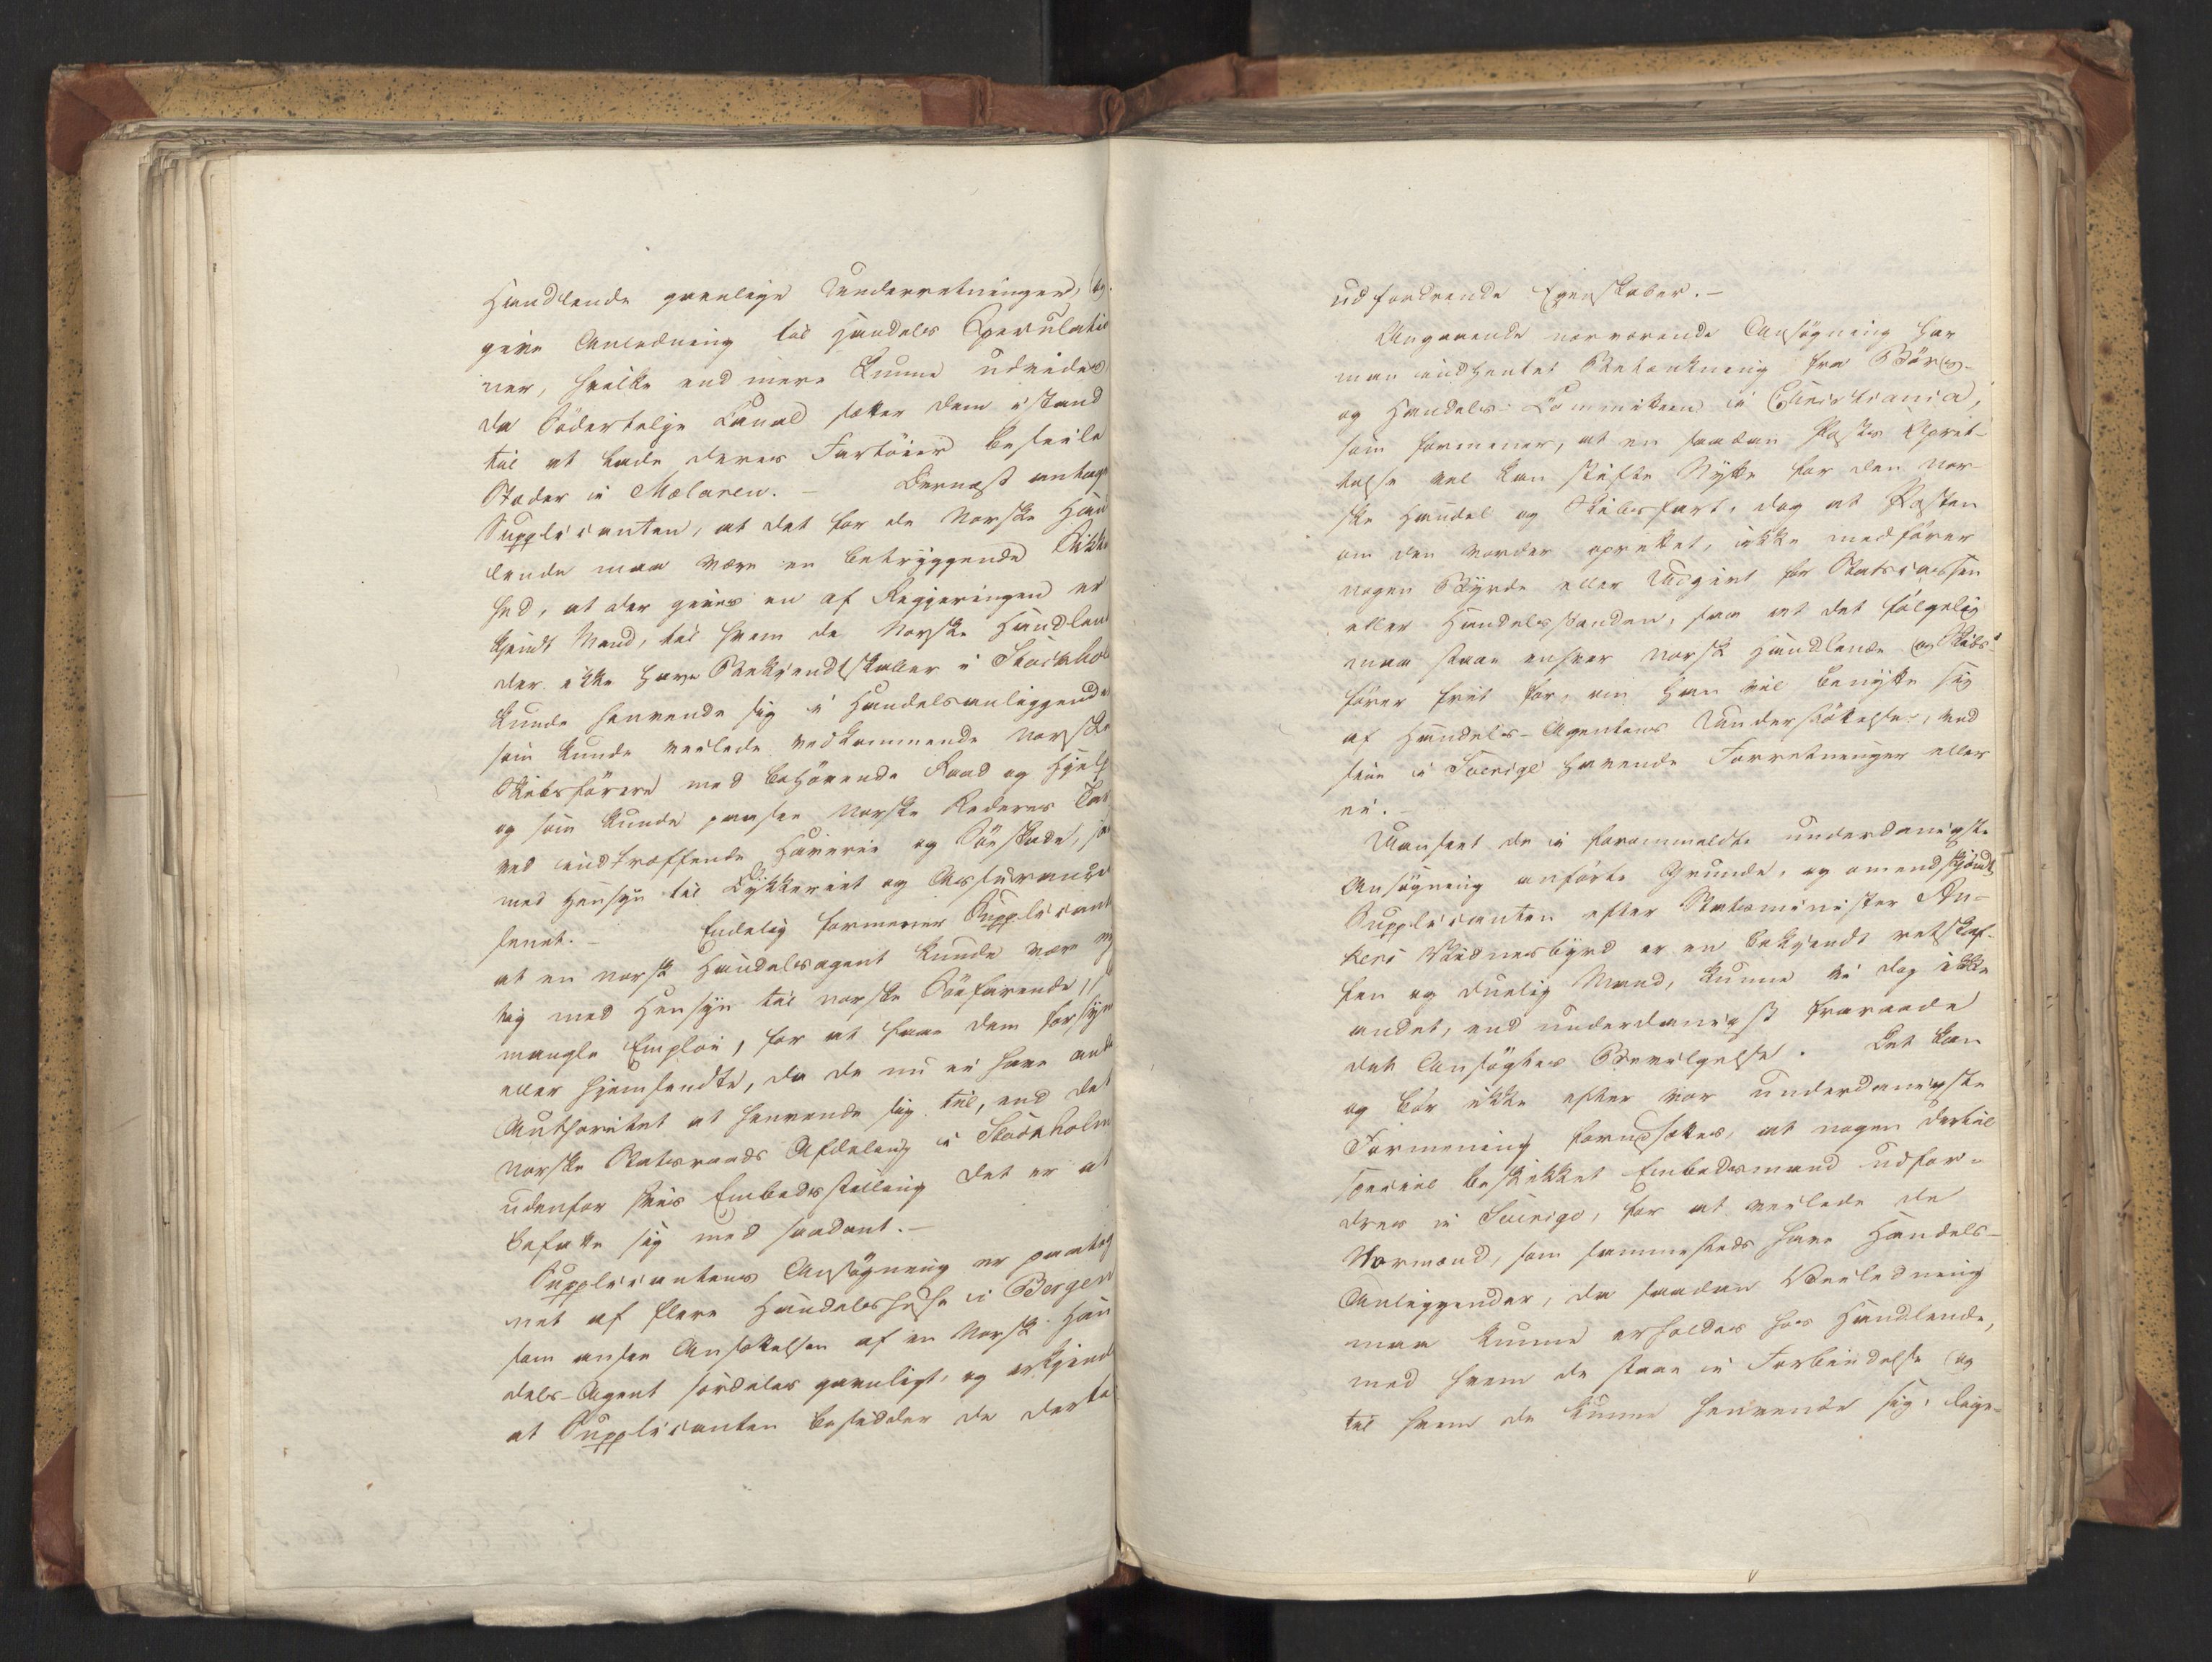 Handlende gavnlige Underretninger, og
give Anledning til Handels Speculatio
ner, hvilke end mere kunne udvides,
da Södertelge Canal sætter dem istand
til at lade deres Fartöier beseile
Stæder i Mælaren. — Dernæst antage
Supplicanten, at det for de norske Han
lende maa være en betryggende Sikke
hed, at der gives en af Regjeringen er
kjendt Mand, til hvem de Norske Handlend
der ikke have Bekjendtskaber i Stockhol
kunde henvende sig i Handelsanliggende
som kunde veilede vedkommende norske
Skibsförere med behörende Raad og Hjelp
og som kunde paasee norske Rederes Tarv
ved indtræffende Haverie og Söeskade, saa
med Hensyn til Dykkeriet og Assurance
senet. — Endelig formener Supplicant
at en norsk Handelsagent kunde være ny
tig med Hensyn til norske Söefarende,
mangle Emploi, for at faae dem forsyn
eller hjemsendte, da de nu ei have ande
Authoritet at henvende sig til, end det
norske Statsraads Afdeling i Stockholm
udenfor hvis Embedsstilling det er at
befatte sig med saadant. —
Supplicantens Ansögning er paateg
net af flere Handelshuse i Bergen
som ansee Ansættelsen af en norsk Han
dels-Agent særdeles gavnligt, og erkjend
at Supplicanten besidder de derti
udfordrende Egenskaber. —
Angaaende nærværende Ansögning har
man indhentet Betænkning fra Börs-
og Handels-Committeen i Christiania,
som formener, at en saadan Posts Opret-
telse vel kan stifte Nytte for den nor-
ske Handel og Skibsfart, dog at Posten
om den vorder oprettet, ikke medförer
nogen Byrde eller Udgivt for Statscassen
eller Handelsstanden, saa at det fölgelig
maa staae enhver norsk Handlende og Skibs-
förer frit for, om han vil benytte sig
af Handels-Agentens Understöttelse, ved
sine i Sverige havende Forretninger eller
ei. —
Uanseet de i foranmeldte underdanigste
Ansögning anförte Grunde, og omendskjöndt
Supplicanten efter Statsminister An-
kers Vidnesbyrd er en bekjendt retskaf-
fen og duelig Mand, kunne vi dog ikke
andet, end underdanigst fraraade
det Ansögtes Bevilgelse. Det kan
og bör ikke efter vor underdanigste
Formening forudsættes, at nogen dertil
speciel beskikket Embedsmand udfor-
dres i Sverige, for at veilede de
Normænd, som sammesteds have Handels-
Anliggender, da saadan Veiledning
maa kunne erholdes hos Handlende,
med hvem de staae i Forbindelse og
til hvem de kunne henvende sig, lige-